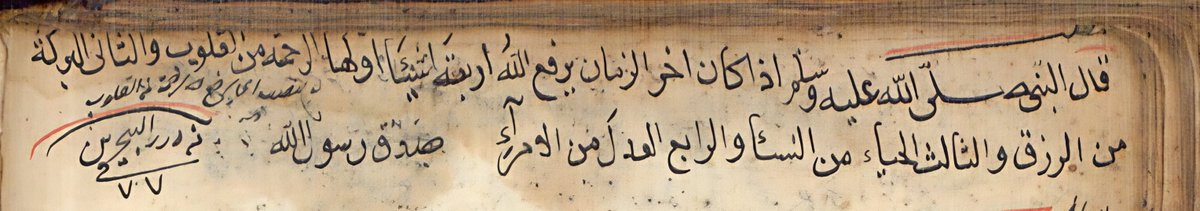 قال النبى صلى الله عليه وسلم اذا كان اخر الزمان يرفع الله اربعة اشيئا اولها الرحمة من القلوب والثانى البركة
من الرزق والثالث الحياء من النسئا والرابع العدل من الامرآء صدق رسول الله